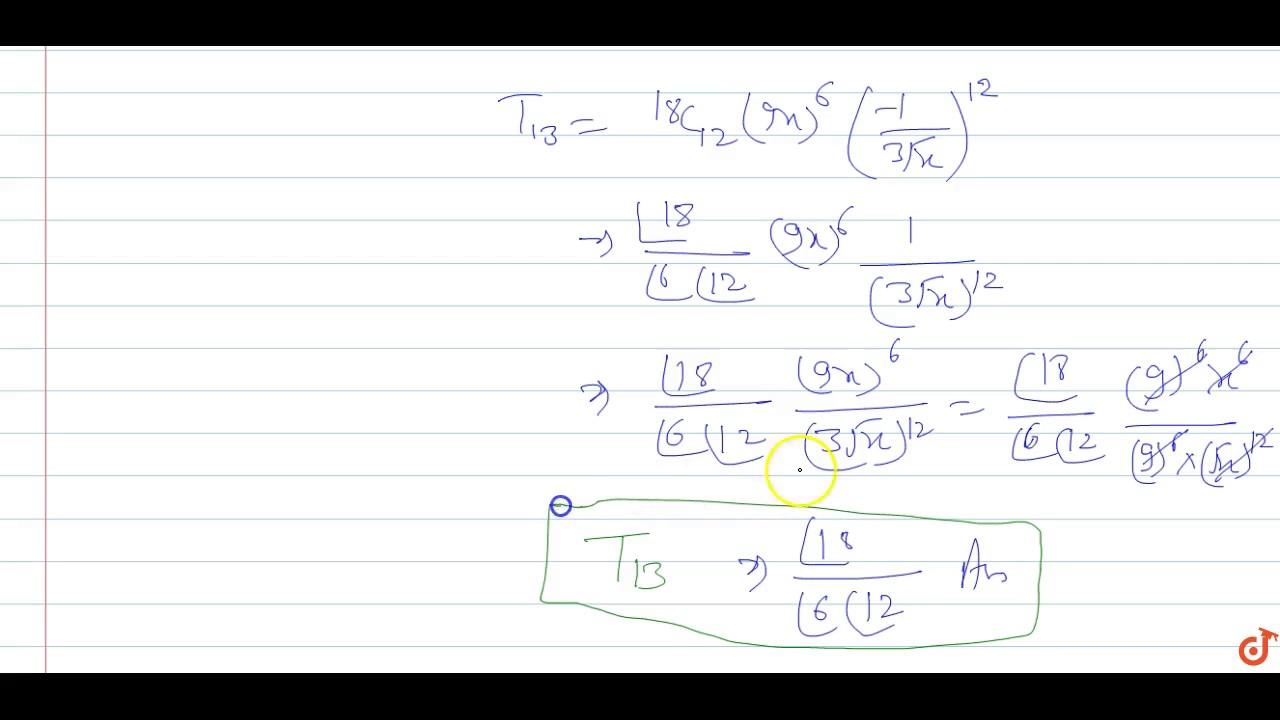 T₁₃ = ¹⁸C₁₂ (9x)⁶ (-1/3√x)¹²
→ ⌊18/⌊6 ⌊12 (9x)⁶ 1/(3√x)¹²
⇒ ⌊18/⌊6 ⌊12 (9x)⁶/(3√x)¹² = ⌊18/⌊6 ⌊12 (9)⁶ x⁶/(9)⁶ × (√x)¹²
T₁₃ ⇒ ⌊18/⌊6 ⌊12 Ans